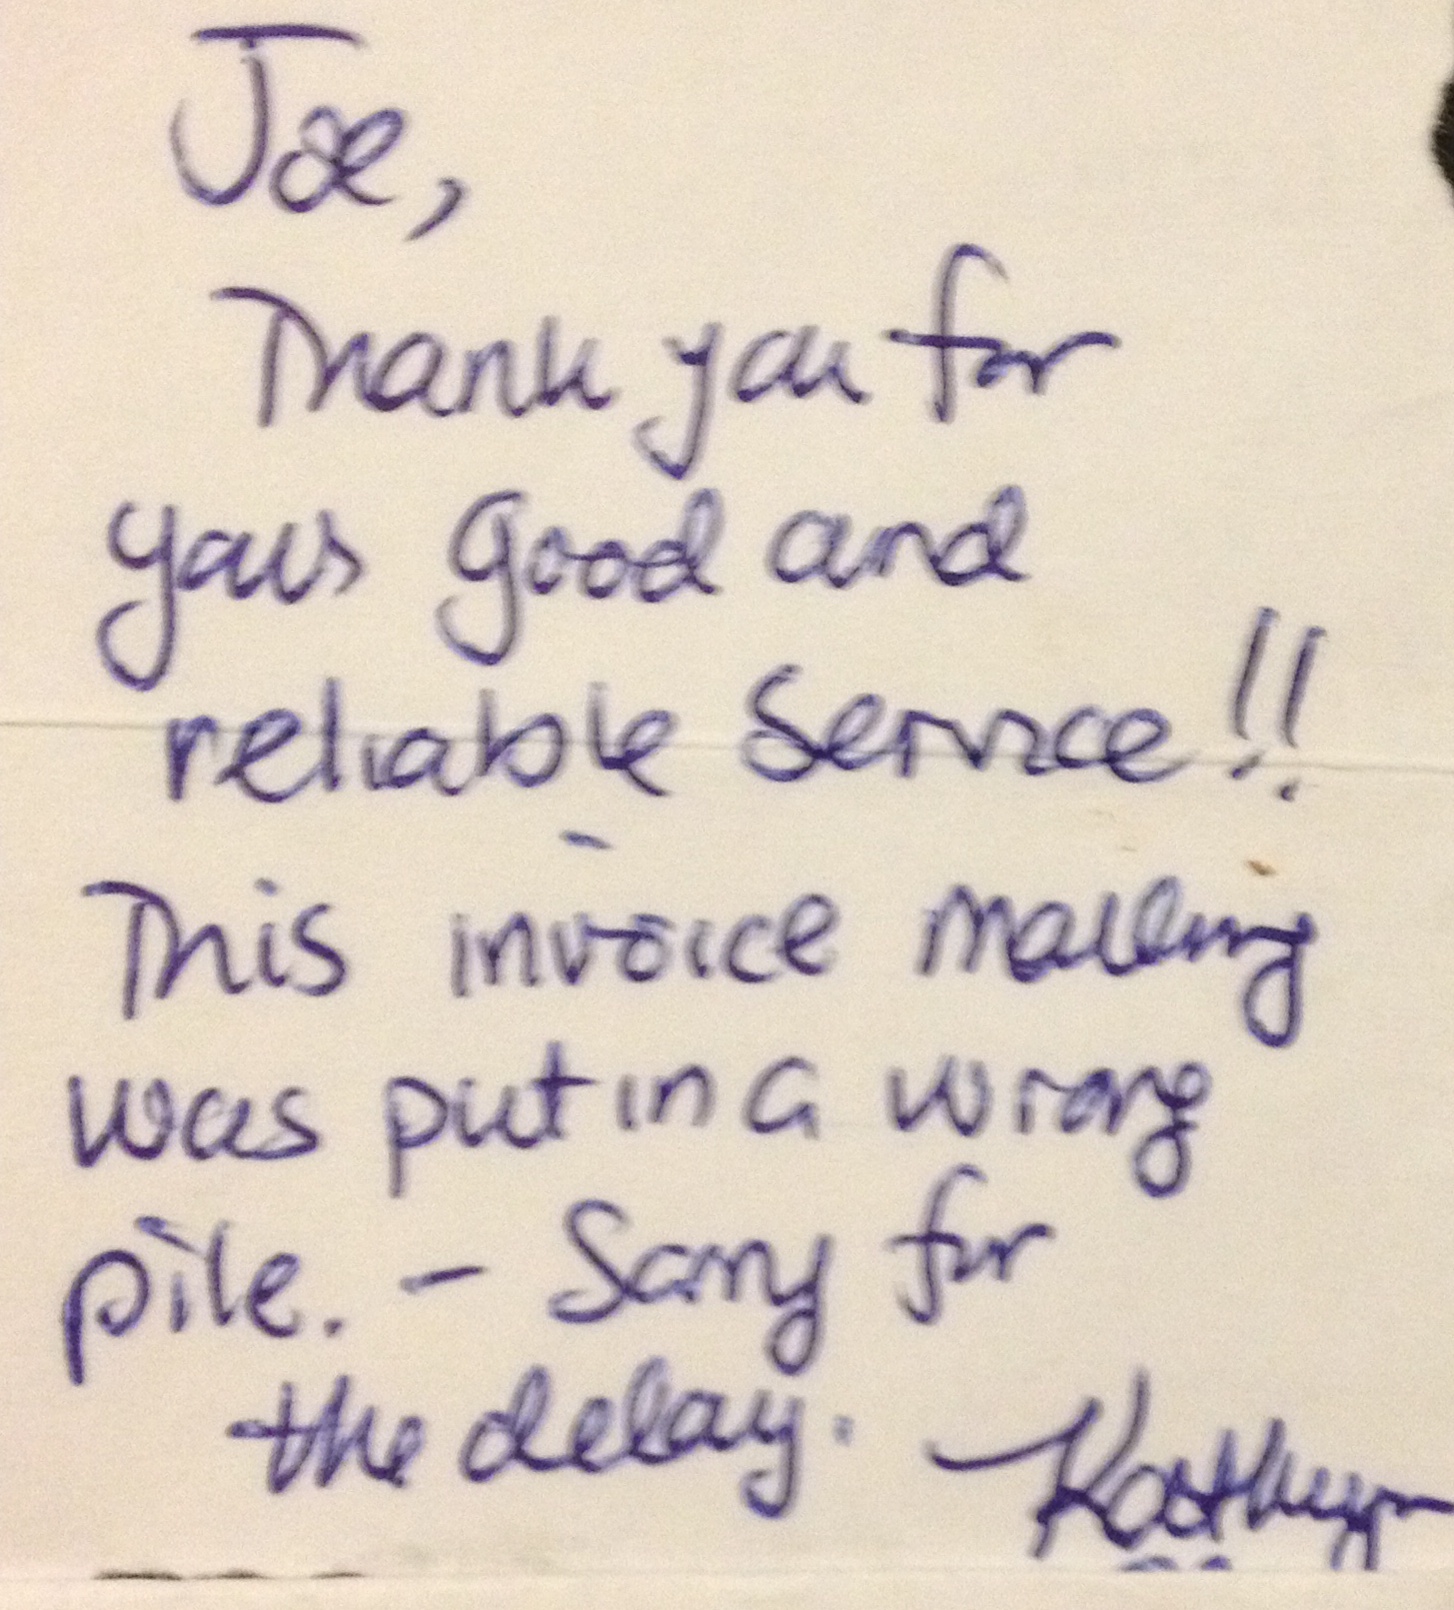 Joe,
Thank you for
your good and
reliable Service!!
This invoice mailing
was put in a wrong
pile. - Sorry for
the delay.
Kathryn